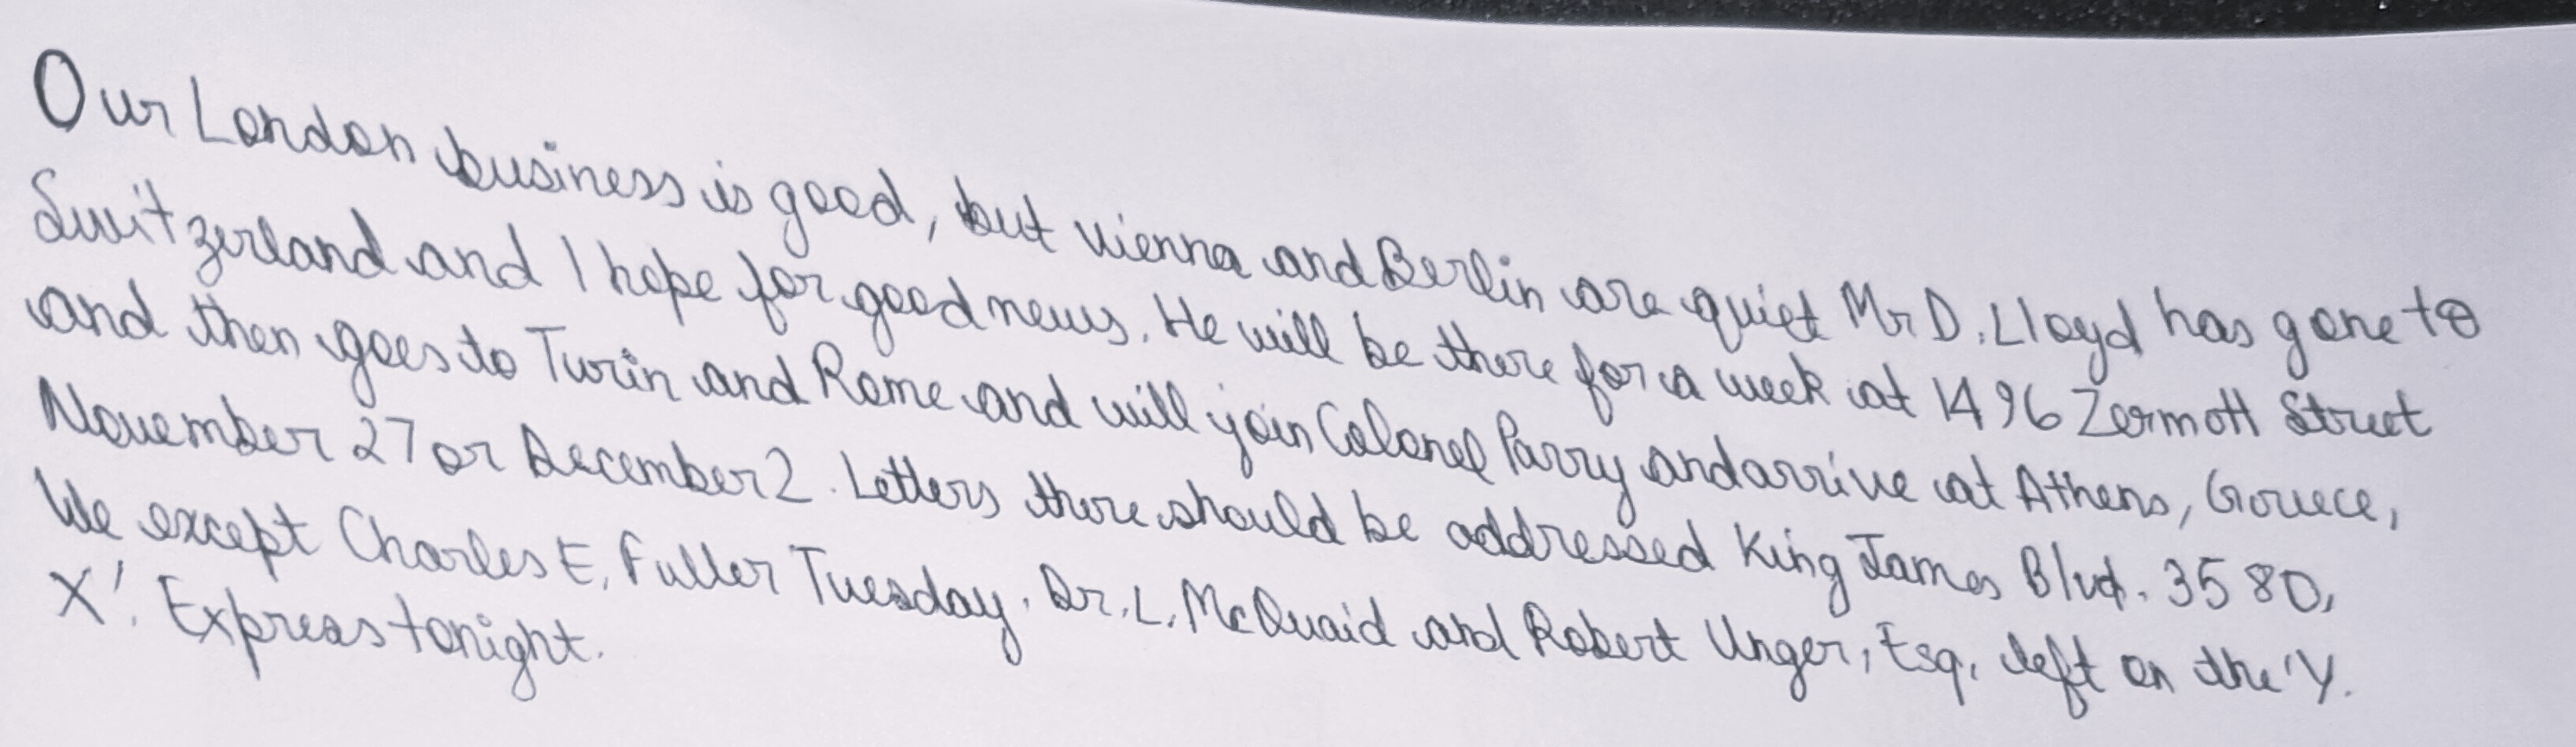 Our London business is good, but vienna and Berlin are quiet Mr D. Lloyd has gone to
Switzerland and I hope for good news. He will be there for a week at 1496 Zermott Street
and then goes to Turin and Rome and will join Colonel Parry and arrive at Athens, Greece,
November 27 or December 2. Letters there should be addressed King James Blvd. 3580,
We except Charles E, Fuller Tuesday. Dr. L. McQuaid and Robert Unger, Esq, left on the 'Y.
X'. Express tonight.